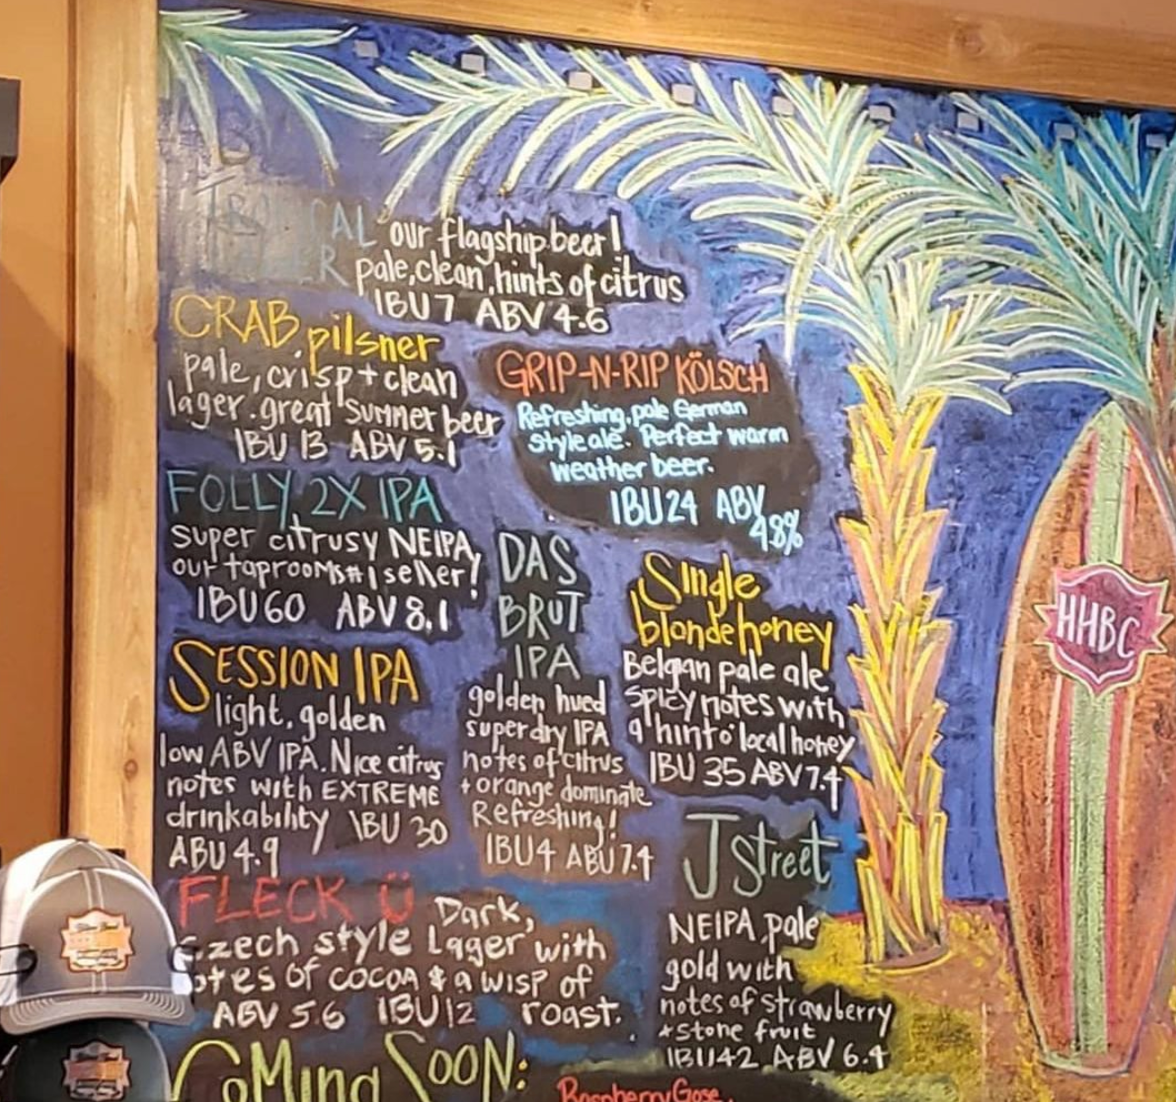 TROPICAL our flagship beer!
pale, clean, hints of citrus
IBU 7 ABV 4.6
CRAB pilsner
pale, crisp + clean
lager. great summer beer
IBU 13 ABV 5.1
GRIP-N-RIP KÖLSCH
Refreshing, pale German
style ale. Perfect warm
weather beer.
IBU 24 ABV
4.8%
FOLLY 2X IPA
super citrusy NEIPA,
our taprooms #1 seller!
IBU 60 ABV 8.1
DAS
BRUT
IPA
golden hued
super dry IPA
notes of citrus
+ orange dominate
Refreshing!
IBU 4 ABV 7.4
Single
blonde honey
Belgian pale ale
spicy notes with
a hint o' local honey
IBU 35 ABV 7.4
SESSION IPA
light, golden
low ABV IPA. Nice citrus
notes with EXTREME
drinkability IBU 30
ABV 4.9
J Street
NEIPA, pale
gold with
notes of strawberry
+ stone fruit
IBU 42 ABV 6.4
FLECK Ü Dark,
Czech style Lager with
notes of cocoa & a wisp of
ABV 5.6 IBU 12 roast.
Coming Soon:
Raspberry Gose
HHBC